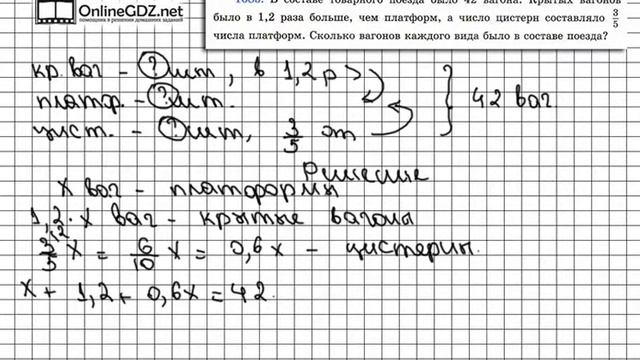 OnlineGDZ.net
помощник в решении домашних заданий
В составе товарного поезда было 42 вагона. Крытых вагонов
было в 1,2 раза больше, чем платформ, а число цистерн составляло 3/5
числа платформ. Сколько вагонов каждого вида было в составе поезда?
кр. ваг - ? шт, в 1,2 р >
платф. - ? шт.
цист. - ? шт, 3/5 от
42 ваг
Решение
x ваг - платформы
1,2 · x ваг - крытые вагоны
3/5 x = 6/10 x = 0,6x - цистерн.
x + 1,2 + 0,6x = 42